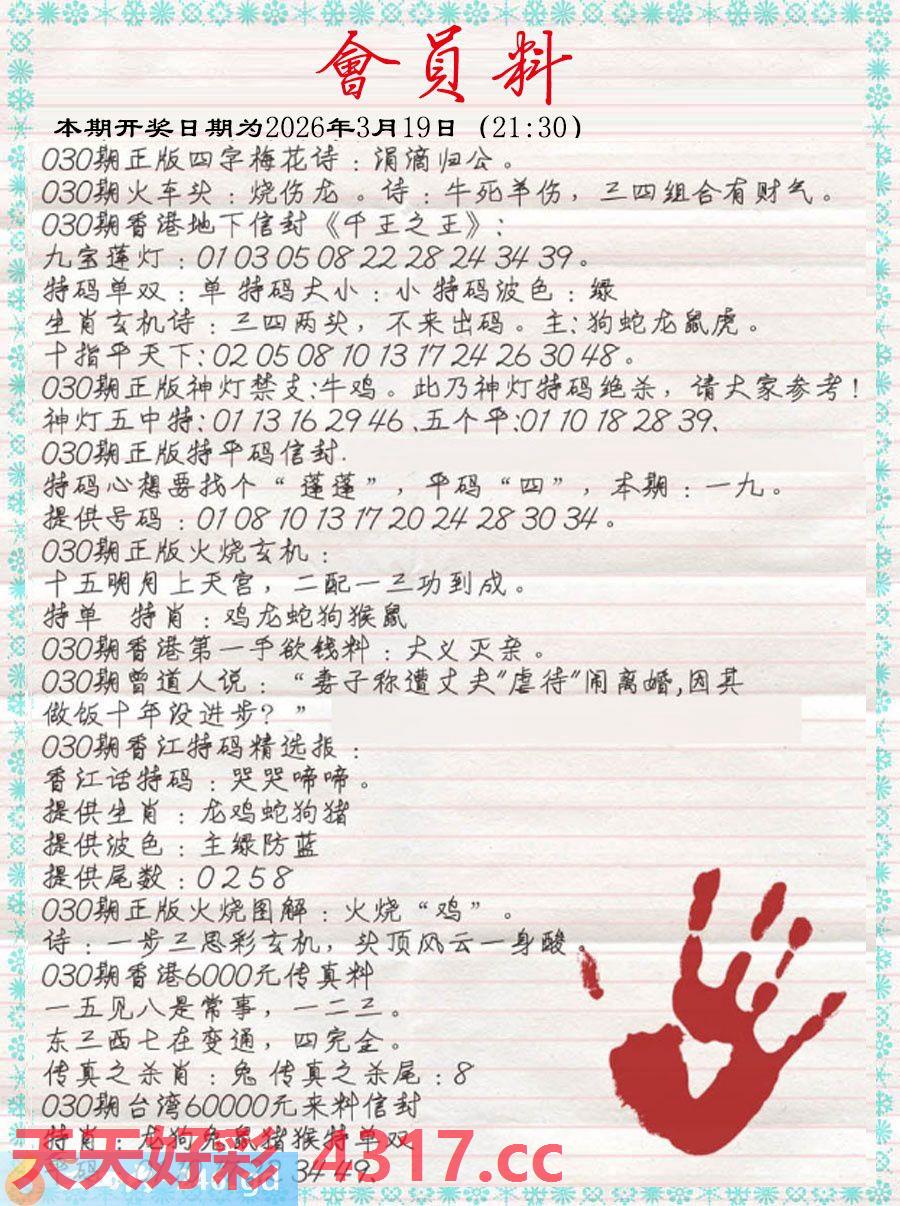 會員料
本期开奖日期为2026年3月19日（21:30）
030期正版四字梅花诗：涓滴归公。
030期火车头：烧伤龙。诗：牛死羊伤，三四组合有财气。
030期香港地下信封《千王之王》：
九宝莲灯：01 03 05 08 22 28 24 34 39。
特码单双：单 特码大小：小 特码波色：绿
生肖玄机诗：三四两头，不来出码。主：狗蛇龙鼠虎。
十指平天下：02 05 08 10 13 17 24 26 30 48。
030期正版神灯禁支:牛鸡。此乃神灯特码绝杀，请大家参考！
神灯五中特：01 13 16 29 46、五个平:01 10 18 28 39、
030期正版特平码信封.
特码心想要找个“蓬蓬”，平码“四”，本期：一九。
提供号码：01 08 10 13 17 20 24 28 30 34。
030期正版火烧玄机：
十五明月上天宫，二配一三功到成。
特单 特肖：鸡龙蛇狗猴鼠
030期香港第一手欲钱料：大义灭亲。
030期曾道人说：“妻子称遭丈夫"虐待"闹离婚,因其
做饭十年没进步？”
030期香江特码精选报：
香江话特码：哭哭啼啼。
提供生肖：龙鸡蛇狗猪
提供波色：主绿防蓝
提供尾数：0 2 5 8
030期正版火烧图解：火烧“鸡”。
诗：一步三思彩玄机，头顶风云一身酸。
030期香港6000元传真料
一五见八是常事，一二三。
东三西七在变通，四完全。
传真之杀肖：兔 传真之杀尾：8
030期台湾60000元来料信封
特肖：龙狗兔鼠猪猴特单双
天天好彩 4317.cc
34 49、